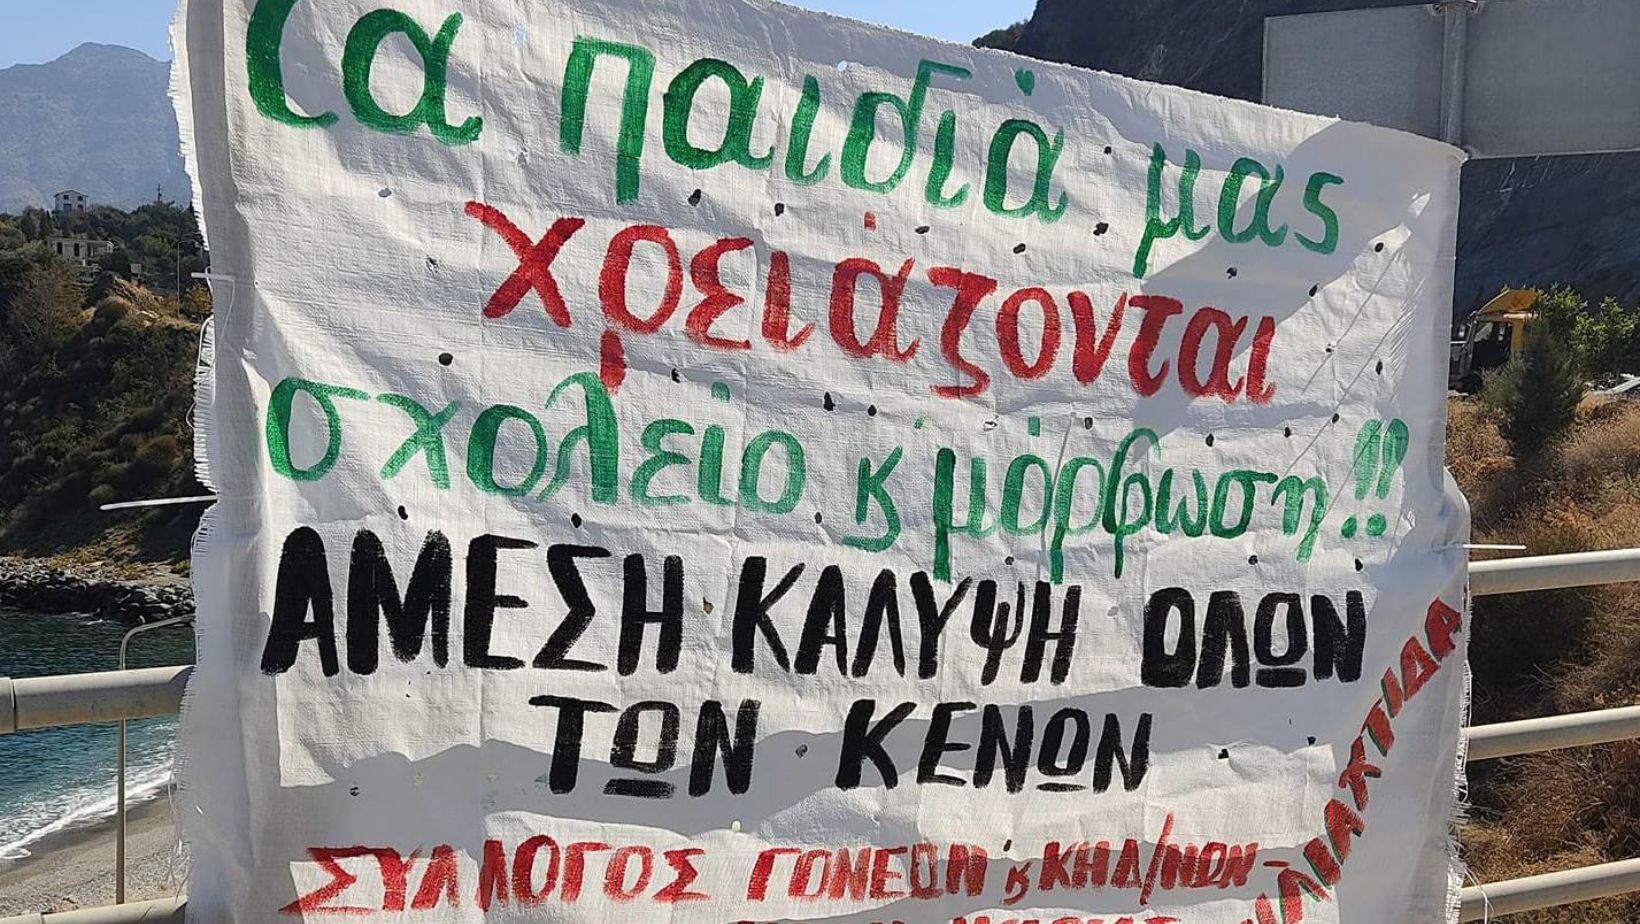 τα παιδιά μας
χρειάζονται
σχολείο κ μόρφωση!!
ΑΜΕΣΗ ΚΑΛΥΨΗ ΟΛΩΝ
ΤΩΝ ΚΕΝΩΝ
ΣΥΛΛΟΓΟΣ ΓΟΝΕΩΝ κ ΚΗΔ/ΝΩΝ-